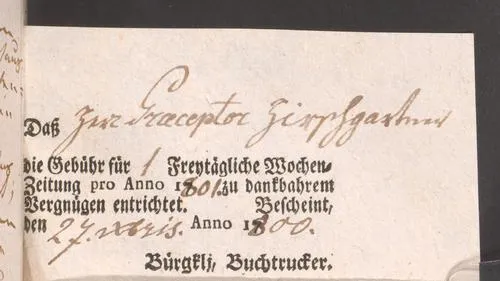 Daß Herr Præceptor Hirschgartner
die Gebühr für 1 Freytägliche Wochen-
Zeitung pro Anno 1801. zu dankbahrem
Vergnügen entrichtet. Bescheint,
den 27. Xbris. Anno 1800.
Bürgklj, Buchtrucker.